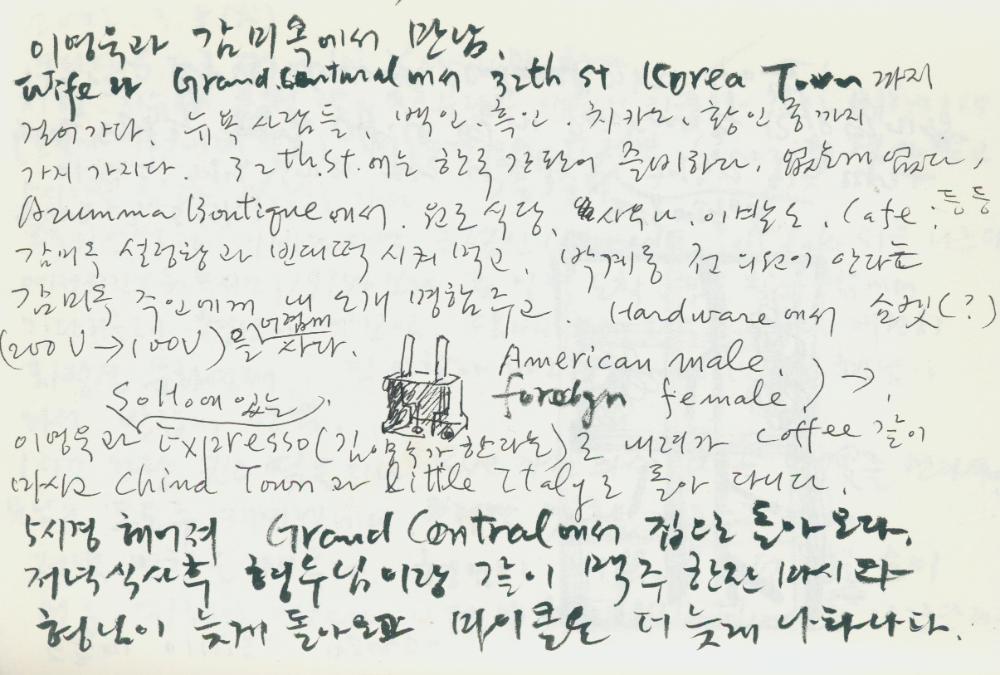 이영욱과 감미옥에서 만남.
Wife와 Grand Central에서 32th st Korea Town까지
걸어가다. 뉴욕사람들, 백인, 흑인, 치카노, 황인종까지
가지가지다. 32th.st.에는 한국 간판이 즐비하다, 없는게 없다,
Azumma Boutique에서 원조식당, 사우나, 이발소, Cafe. 등등
감미옥 설렁탕과 빈대떡 시켜 먹고. 박계동 전 의원이 안다는
감미옥 주인에게 내 소개 명함주고. Hardware에서 소켓(?)
(200V→100V)을 사다.
American male,
SoHo에 있는
foreign female )→,
이영욱과 Expresso( 한라는)로 내려가 coffee 같이
마시고 China Town과 little Italy로 돌아 다니다.
5시경 헤어져 Grand Central에서 집으로 돌아오다.
저녁식사후 형수님이랑 같이 맥주 한잔 마시다
형님이 늦게 돌아오고 마이클은 더 늦게 나타나다.